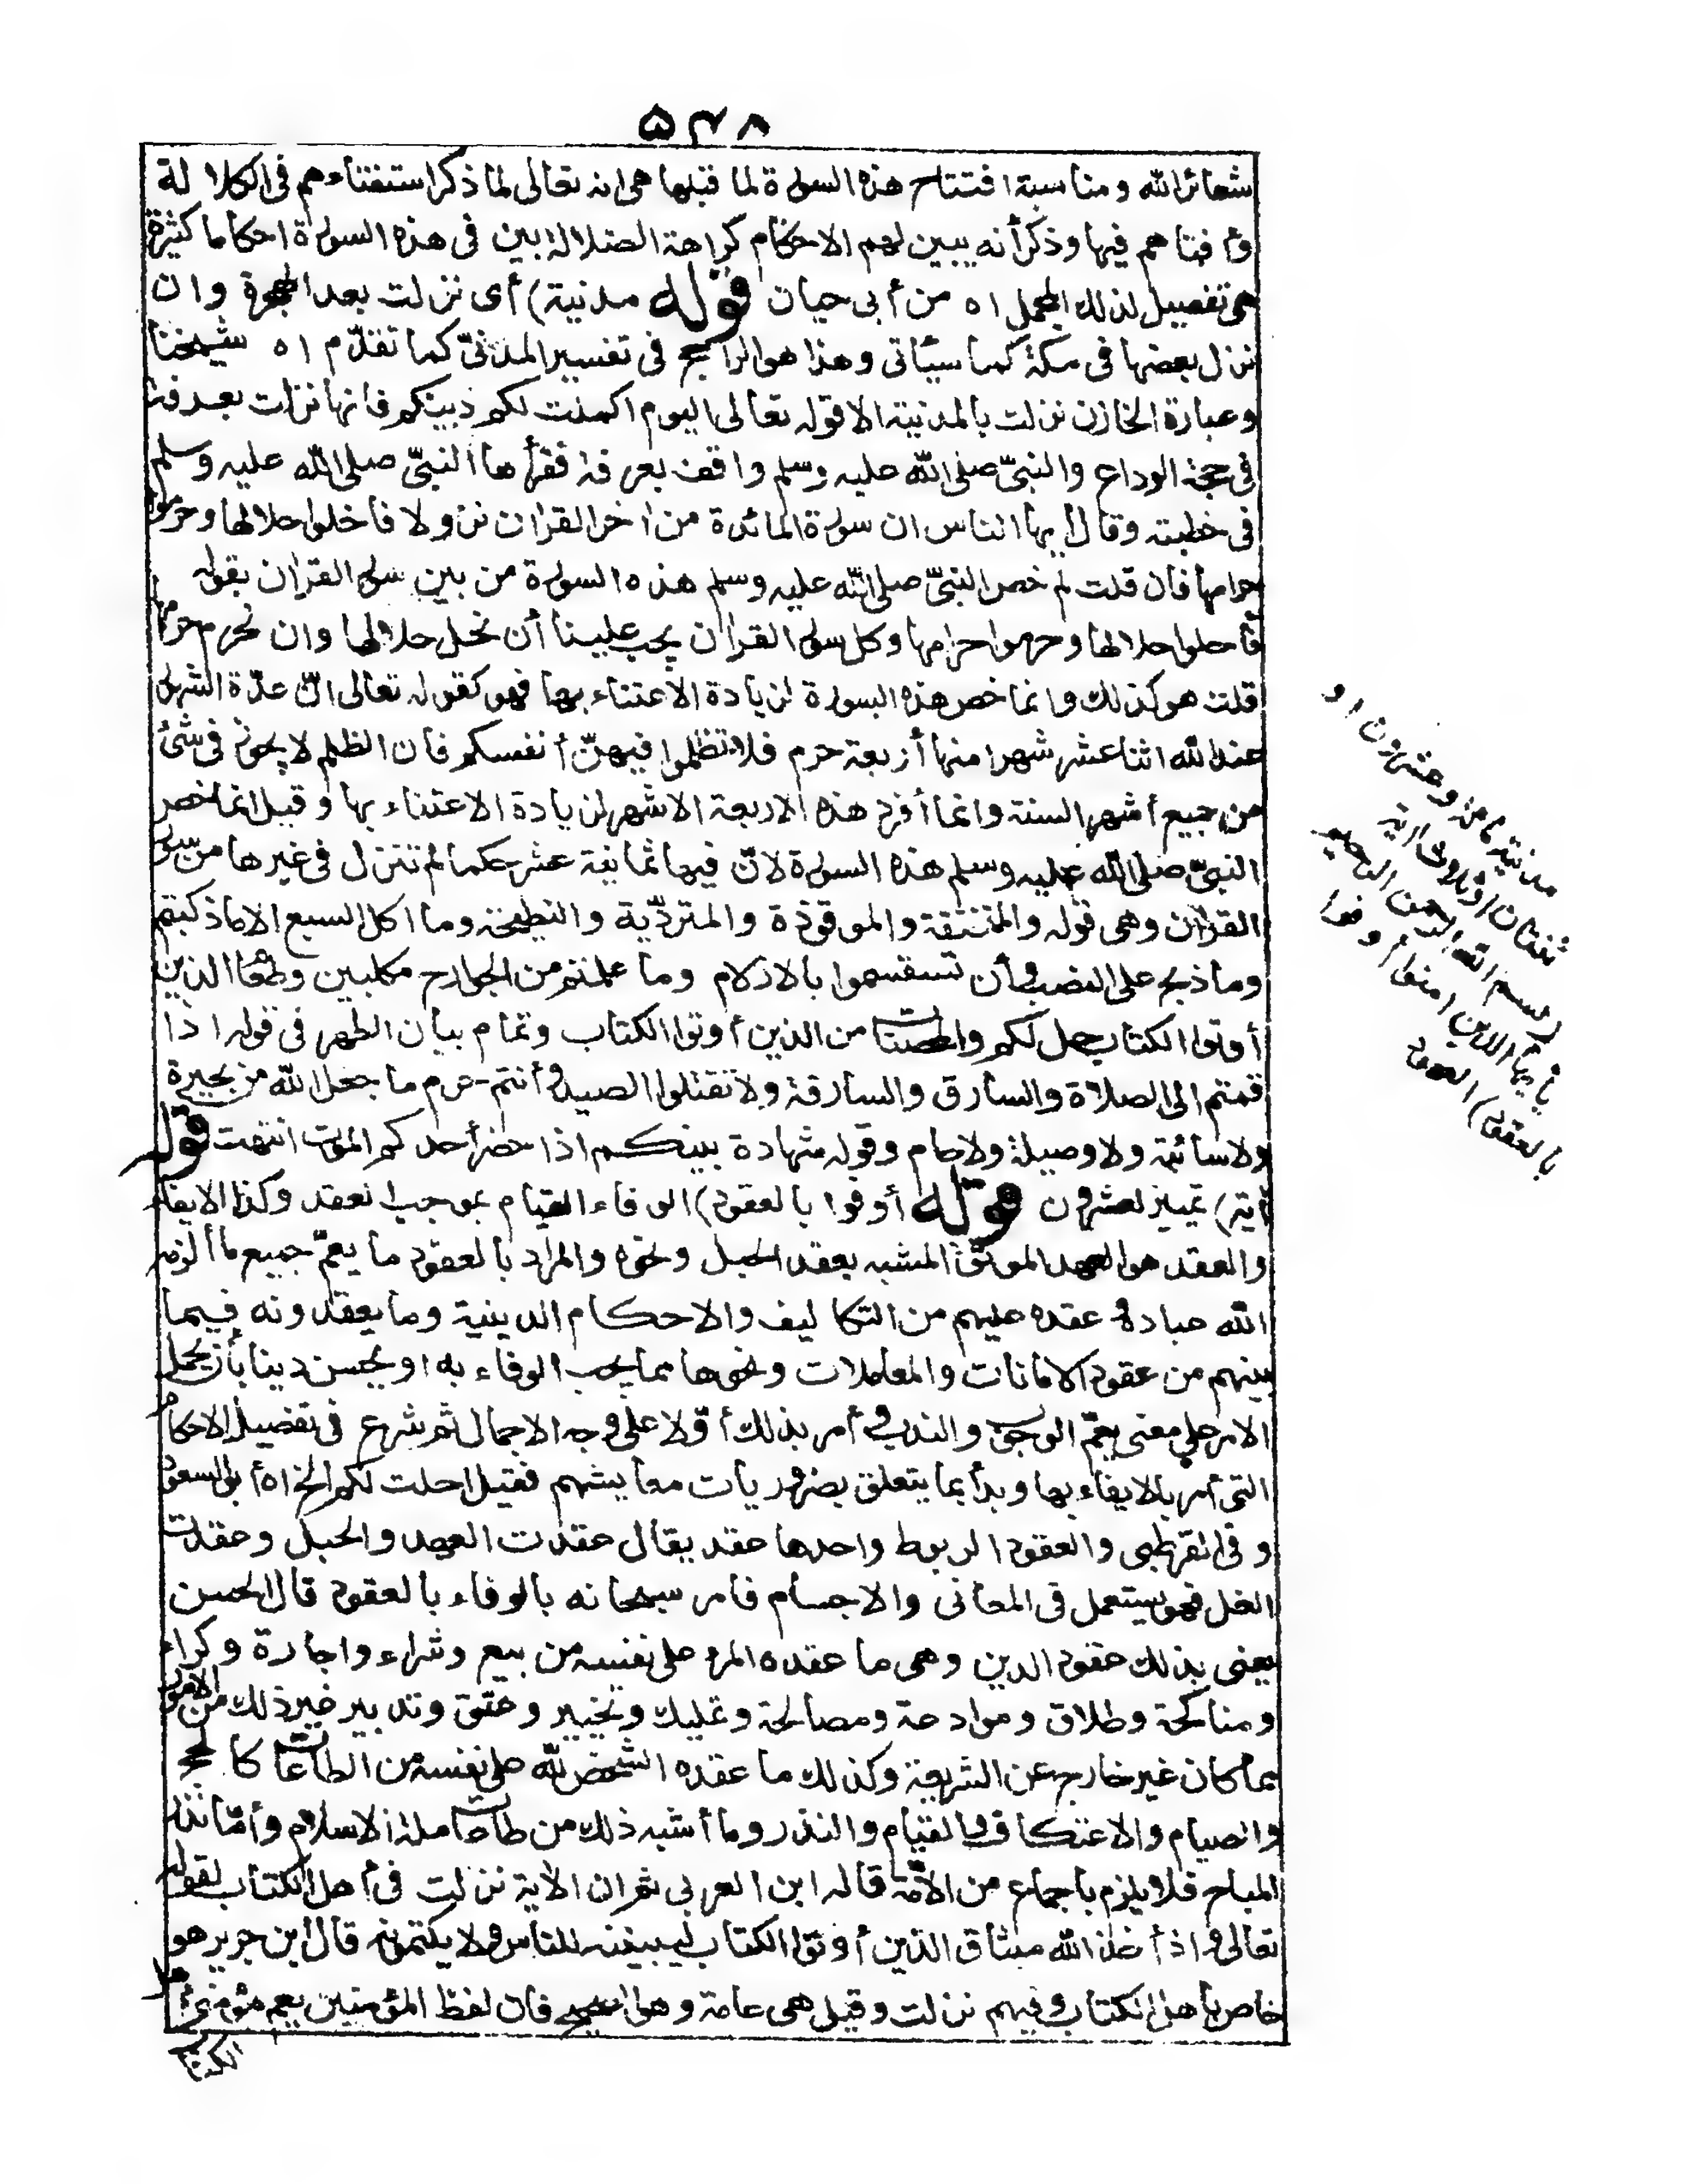 ٥٤٨
شعائر الله ومناسبة افتتاح هذه السورة لما قبلها هي انه تعالى لما ذكر استفتاءهم في الكلالة
وأفتاهم فيها وذكر أنه يبين لهم الاحكام كراهة الضلالة بين في هذه السورة احكاما كثيرة
هي تفصيل لذلك المجمل اه من أبي حيان قوله مدنية) أي نزلت بعد الهجرة وان
نزل بعضها في مكة كما سيأتي وهذا هو الراجح في تفسير المدنيّ كما تقدّم اه شيخنا
وعبارة الخازن نزلت بالمدنية الا قوله تعالى اليوم اكملت لكم دينكم فانها نزلت بعرفة
في حجة الوداع والنبيّ صلى الله عليه وسلم واقف بعرفة فقرأها النبيّ صلى الله عليه وسلم
في خطبته وقال أيها الناس ان سورة المائدة من اخر القران نزولا فاحلوا حلالها وحرموا
حرامها فان قلت لم خص النبيّ صلى الله عليه وسلم هذه السورة من بين سور القران بقوله
فأحلوا حلالها وحرموا حرامها وكل سور القران يجب علينا أن نحل حلالها وان نحرم حرامها
قلت هو كذلك وانما خص هذه السورة لزيادة الاعتناء بها فهو كقوله تعالى انّ عدّة الشهور
عند الله اثنا عشر شهرا منها أربعة حرم فلا تظلموا فيهنّ أنفسكم فان الظلم لا يجوز في شئ
من جميع أشهر السنة وانما أفرد هذه الاربعة الاشهر لزيادة الاعتناء بها وقيل انما خص
النبيّ صلى الله عليه وسلم هذه السورة لانّ فيها ثمانية عشر حكما لم تنزل في غيرها من سور
القرآن وهي قوله والمنخنقة والموقوذة والمتردّية والنطيحة وما اكل السبع الا ما ذكيتم
وما ذبح على النصب وأن تستقسموا بالازلام وما علمتم من الجوارح مكلبين وطعام الذين
أوتوا الكتاب حل لكم والمحصنات من الذين أوتوا الكتاب وتمام بيان الطهر في قوله اذا
قمتم الى الصلاة والسارق والسارقة ولا تقتلوا الصيد وأنتم حرم ما جعل الله من بحيرة
ولا سائبة ولا وصيلة ولا حام وقوله شهادة بينكم اذا حضر أحدكم الموت انتهت قوله
آية) تمييز لعشرون قوله أوفوا بالعقود) الوفاء القيام بموجب العقد وكذا الايفاء
والعقد هو العهد الموثق المشبه بعقد الحبل ونحوه والمراد بالعقود ما يعمّ جميع ما ألزمه
الله عباده وعقده عليهم من التكاليف والاحكام الدينية وما يعقدونه فيما
بينهم من عقود الامانات والمعاملات ونحوها مما يجب الوفاء به او يحسن دينا بأن يحمل
الامر على معنى يعمّ الوجوب والندب وأمر بذلك أوّلا على وجه الاجمال ثم شرع في تفصيل الاحكام
التي أمر بالايفاء بها وبدأ بما يتعلق بضروريات معايشهم فقيل احلت لكم الخ اه أبو السعود
وفي القرطبي والعقود الربوط واحدها عقد يقال عقدت العهد والحبل وعقدت
العسل فهو يستعمل في المعاني والاجسام فامر سبحانه بالوفاء بالعقود قال الحسن
يعني بذلك عقود الدين وهي ما عقده المرء على نفسه من بيع وشراء واجارة وكراء
ومناكحة وطلاق وموادعة ومصالحة وتمليك وتخيير وعتق وتدبير غير ذلك من الامور
مما كان غير خارج عن الشريعة وكذلك ما عقده الشخص لله على نفسه من الطاعات كالحج
والصيام والاعتكاف والقيام والنذر وما أشبه ذلك من طاعات ملة الاسلام وأمّا نذر
المباح فلا يلزم باجماع من الأمّة قاله ابن العربي ثم ان الآية نزلت في أهل الكتاب لقوله
تعالى واذ أخذ الله ميثاق الذين أوتوا الكتاب ليبيننه للناس ولا يكتمونه قال ابن جرير هو
خاص بأهل الكتاب وفيهم نزلت وقيل هي عامة وهو الصحيح فان لفظ المؤمنين يعم مؤمني أهل
الكتاب
مدنية مائة وعشرون او
ثنتان او ثلاث آية
بسم الله الرحمن الرحيم
يأيها الذين امنوا أوفوا
بالعقود) العهود